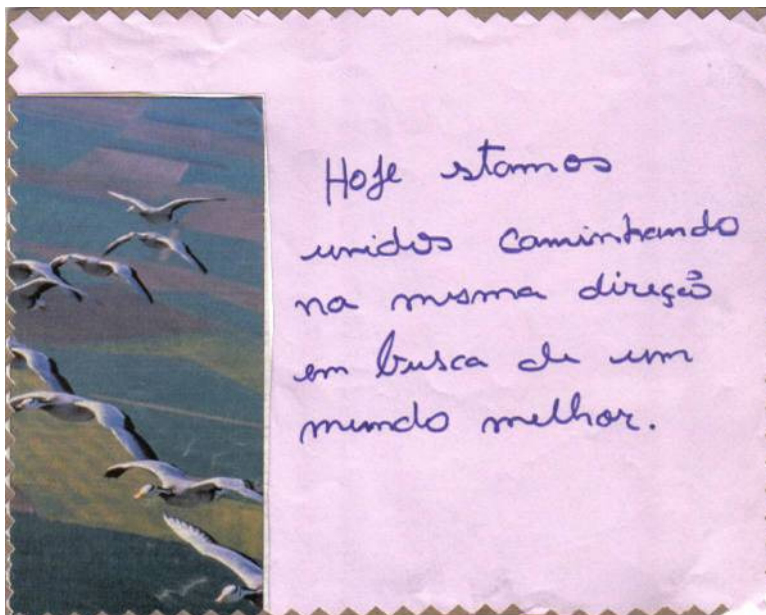 Hoje stamos
unidos caminhando
na mesma direção
em busca de um
mundo melhor.